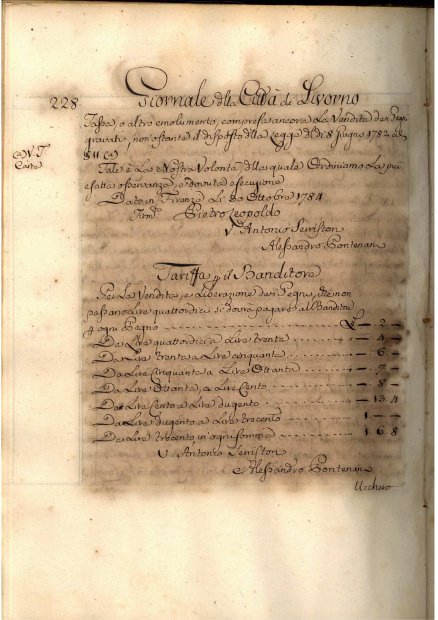 228
Giornale della Città di Livorno
Tassa, o altro emolumento, compresa ancora La Vendita dei
gravati, non ostante il disposto della Legge de dì 8 Giugno 1782 al
§ II (a)
(a) V. T.
Carta
Tale è La Nostra Volontà, della quale Ordiniamo La più
esatta osservanza, e dovuta esecuzione
Dato in Firenze Li 30 Ottobre 1784
Firm.
Pietro Leopoldo
V. Antonio Serristori
Alessandro Pontenani
Tariffa p. il Banditore
Per La Vendita, e Liberazione dei Pegni, che non
passano Lire quattordici si dovrà pagare al Banditore
p. ogni Pegno - - - £ - 2 -
Da Lire quattordici a Lire trenta - 4 -
Da Lire trenta a Lire cinquanta - 6 -
Da Lire Cinquanta a Lire Ottanta - 7 -
Da Lire Ottanta, a Lire Cento - 8 -
Da Lire Cento a Lire dugento - 13.4
Da Lire dugento a Lire trecento 1. - -
Da Lire trecento in ogni somma 1 6.8
V. Antonio Serristori
Alessandro Pontenani